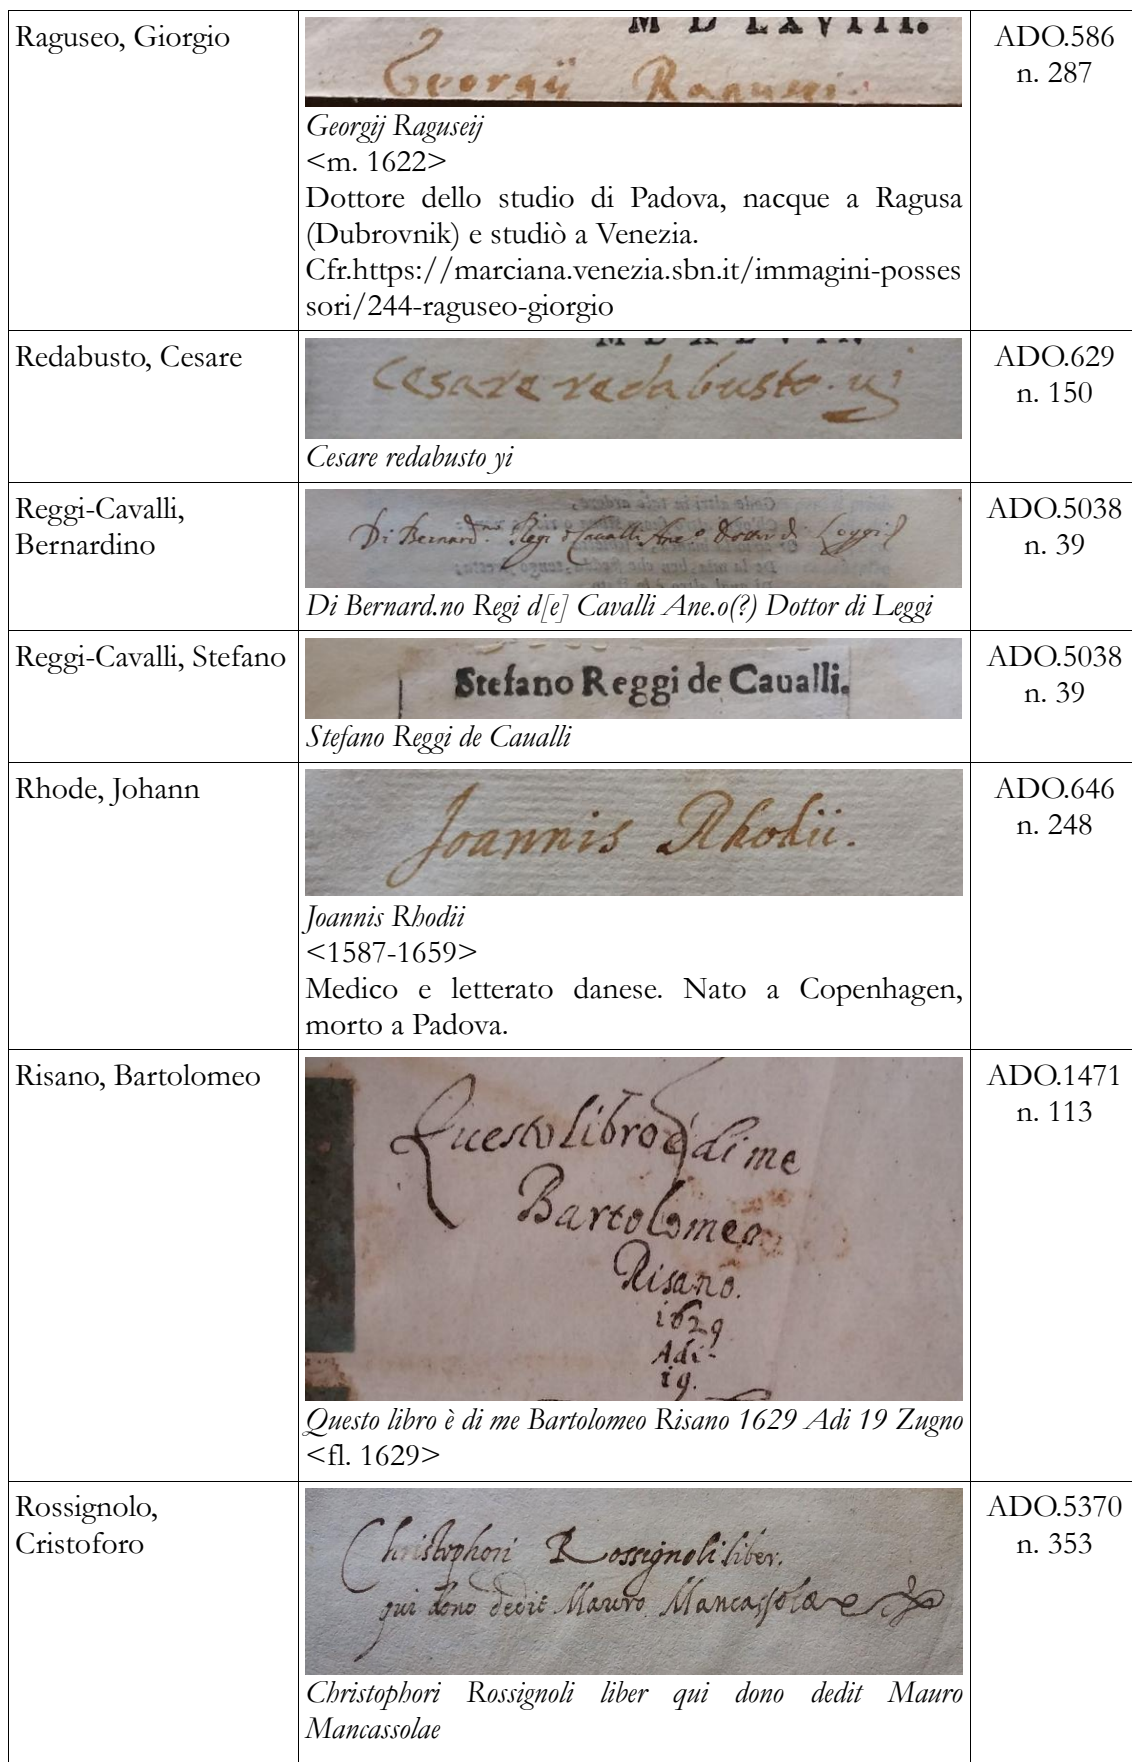 Raguseo, Giorgio
M D LXVIII.
Georgij Raguseij
Georgij Raguseij
<m. 1622>
Dottore dello studio di Padova, nacque a Ragusa
(Dubrovnik) e studiò a Venezia.
Cfr.https://marciana.venezia.sbn.it/immagini-posses
sori/244-raguseo-giorgio
ADO.586
n. 287
Redabusto, Cesare
Cesare redabusto. yi
Cesare redabusto yi
ADO.629
n. 150
Reggi-Cavalli,
Bernardino
Di Bernard.no Regi d Cavalli Ane.o Dottor di Leggi
Di Bernard.no Regi d[e] Cavalli Ane.o(?) Dottor di Leggi
ADO.5038
n. 39
Reggi-Cavalli, Stefano
Stefano Reggi de Caualli.
Stefano Reggi de Caualli
ADO.5038
n. 39
Rhode, Johann
Joannis Rhodii.
Joannis Rhodii
<1587-1659>
Medico e letterato danese. Nato a Copenhagen,
morto a Padova.
ADO.646
n. 248
Risano, Bartolomeo
Questo libro è di me
Bartolomeo
Risano.
1629
Adi
19.
Questo libro è di me Bartolomeo Risano 1629 Adi 19 Zugno
<fl. 1629>
ADO.1471
n. 113
Rossignolo,
Cristoforo
Christophori Rossignoli liber.
qui dono dedit Mauro Mancassolae
Christophori Rossignoli liber qui dono dedit Mauro
Mancassolae
ADO.5370
n. 353